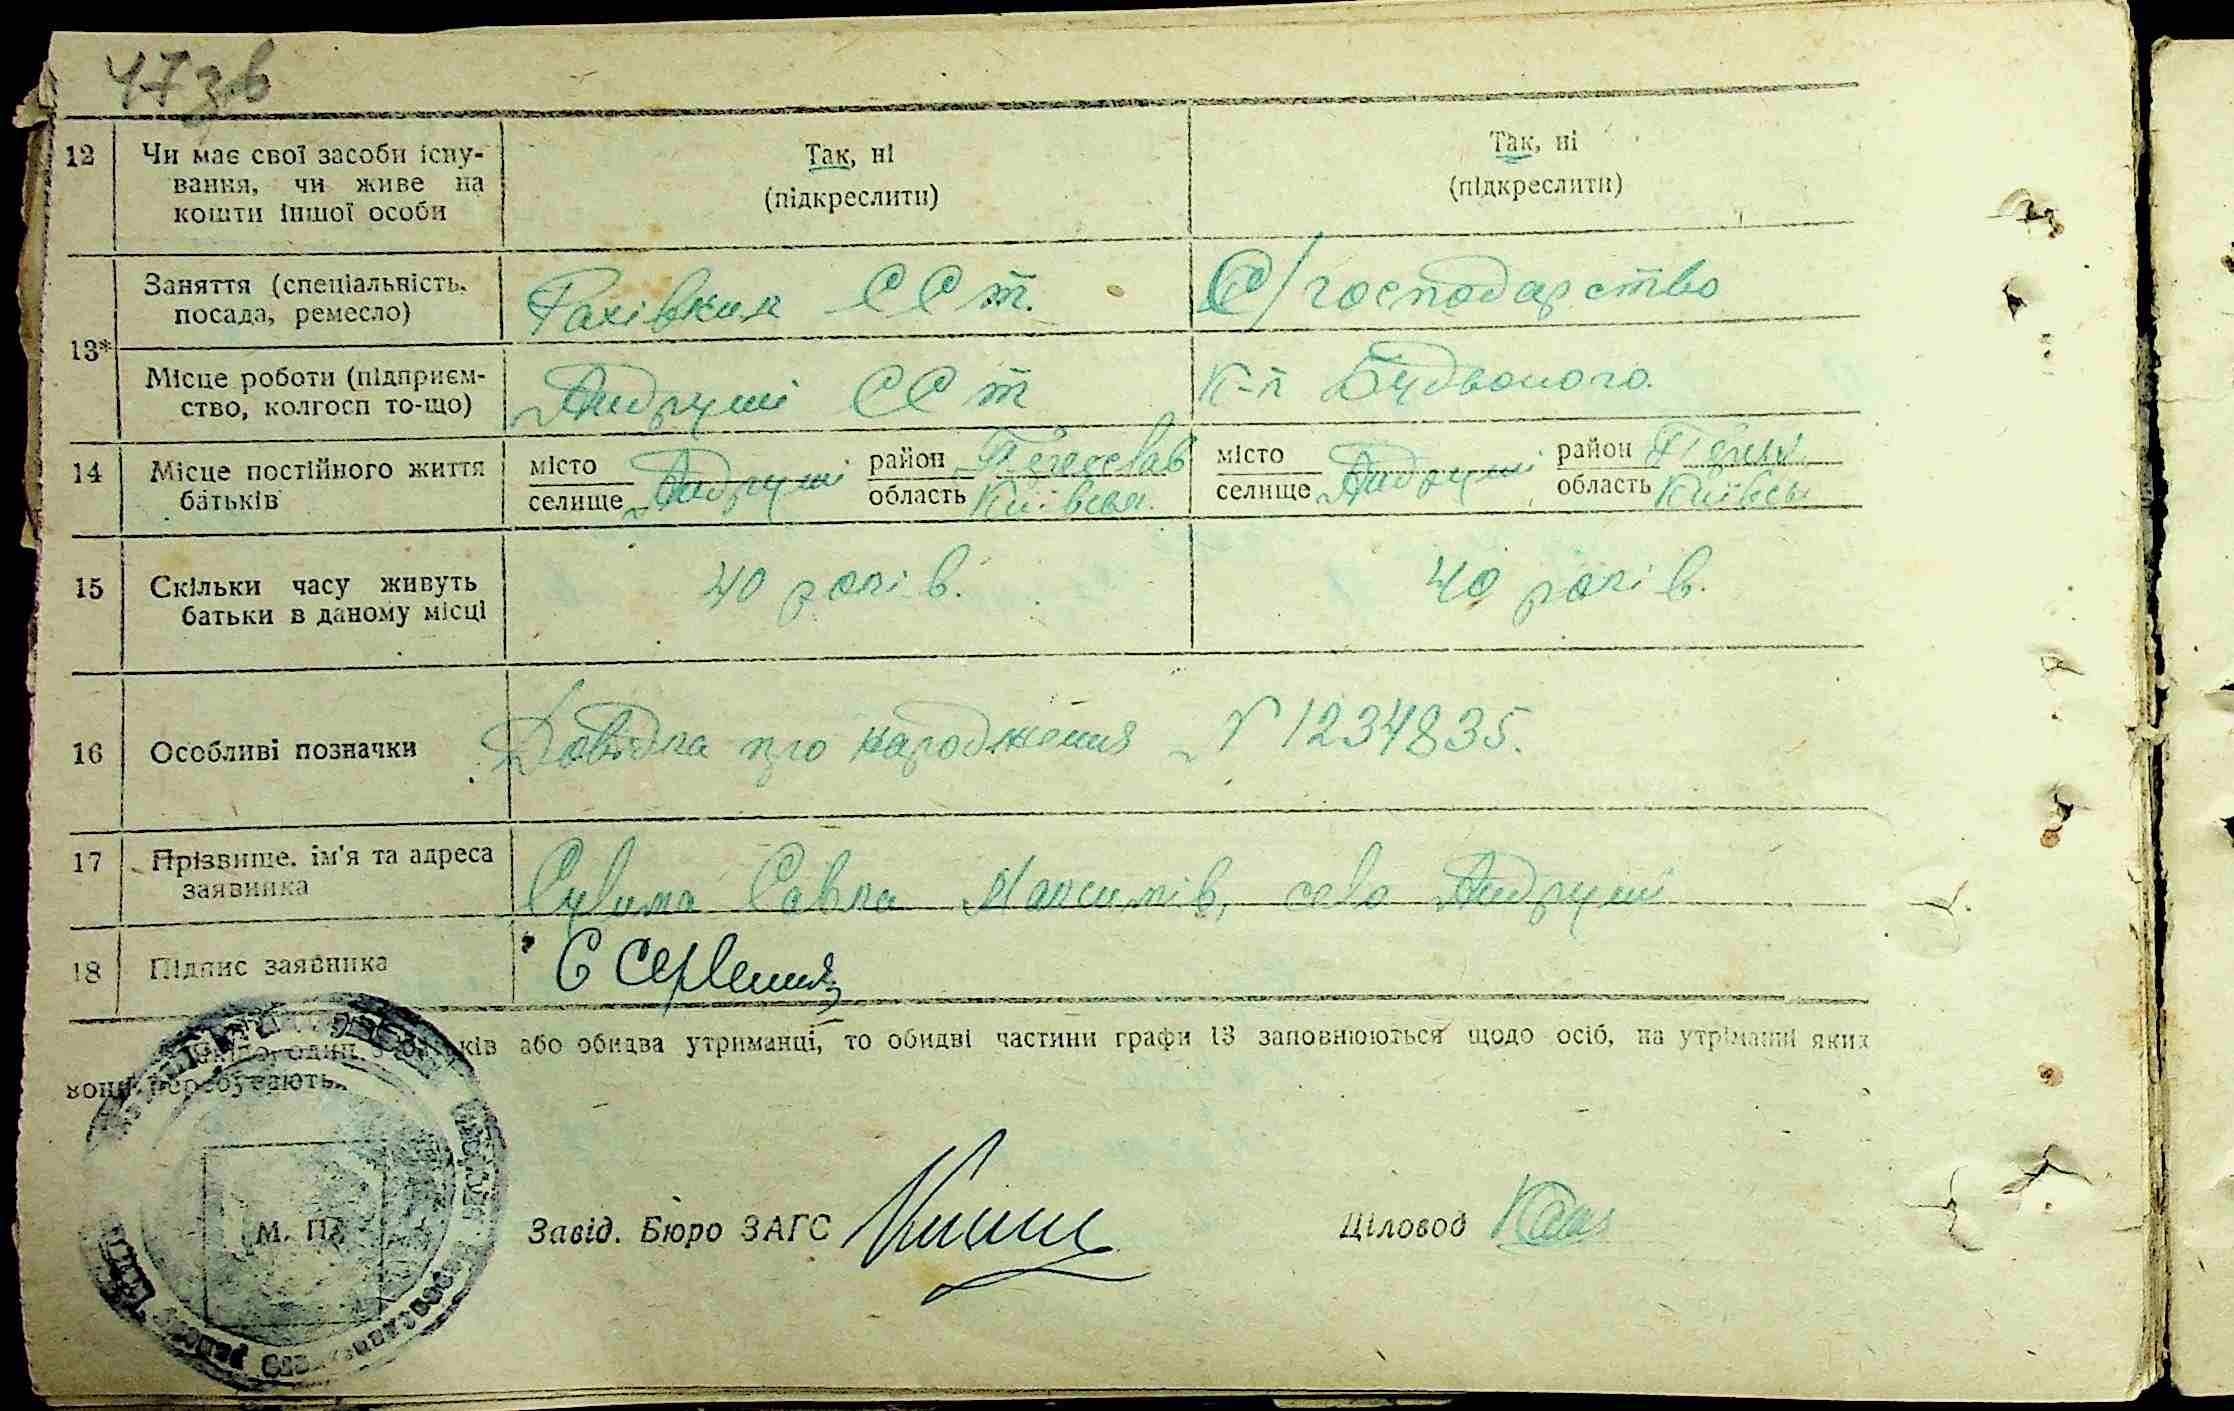 47зв
12 Чи має свої засоби існу-
вання, чи живе на
кошти іншої особи
Так, ні
(підкреслити)
Так, ні
(підкреслити)
13*
Заняття (спеціальність,
посада, ремесло)
ССТ.
С/господарство
Місце роботи (підприєм-
ство, колгосп то-що)
Андруші ССТ
к-п Будьоного.
14 Місце постійного життя
батьків
місто
селище Андруші
район Переслав
область Київськ.
місто
селище Андруші
район
область Київськ
15 Скільки часу живуть
батьки в даному місці
40 років.
40 років.
16 Особливі позначки
Довідка про народження N 1234835.
17 Прізвище, ім'я та адреса
заявника
Сулима Савка Максимів, село Андруші
18 Підпис заявника
один з батьків або обидва утриманці, то обидві частини графи 13 заповнюються щодо осіб, на утріманні яких
вони перебувають.
М. П.
Завід. Бюро ЗАГС
Діловод